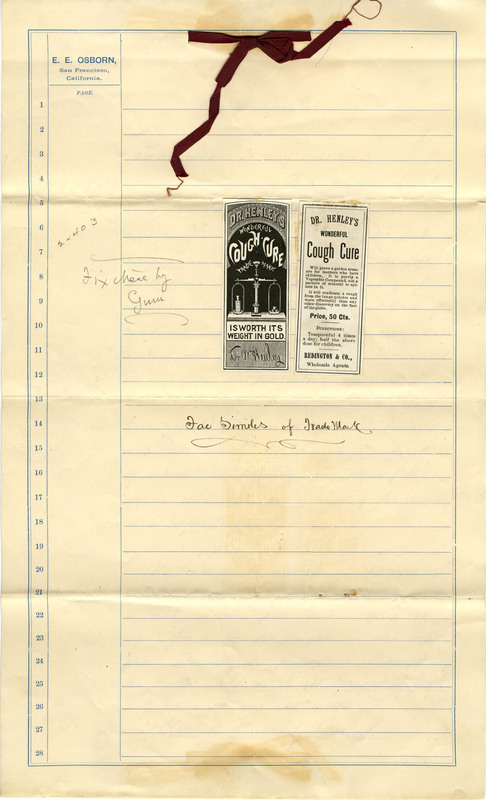 E. E. OSBORN,
San Francisco,
California.
PAGE
1
2
3
4
5
6
7
8
9
10
11
12
13
14
15
16
17
18
19
20
21
22
23
24
25
26
27
28
2-403
Fix these by
Gum
DR. HENLEY'S
WONDERFUL
COUGH CURE
TRADE MARK
IS WORTH ITS
WEIGHT IN GOLD.
DR. HENLEY'S
WONDERFUL
Cough Cure
Will prove a golden treas-
ure for mothers who have
children. It is purely a
Vegetable Compound, not a
particle of mineral or opi-
ates in it.
It will eradicate a cough
from the lungs quicker and
more effectually than any
other discovery on the face
of the globe.
Price, 50 Cts.
DIRECTIONS:
Teaspoonful 4 times
a day; half the above
dose for children.
REDINGTON & CO.,
Wholesale Agents.
Fac Similes of Trade Mark